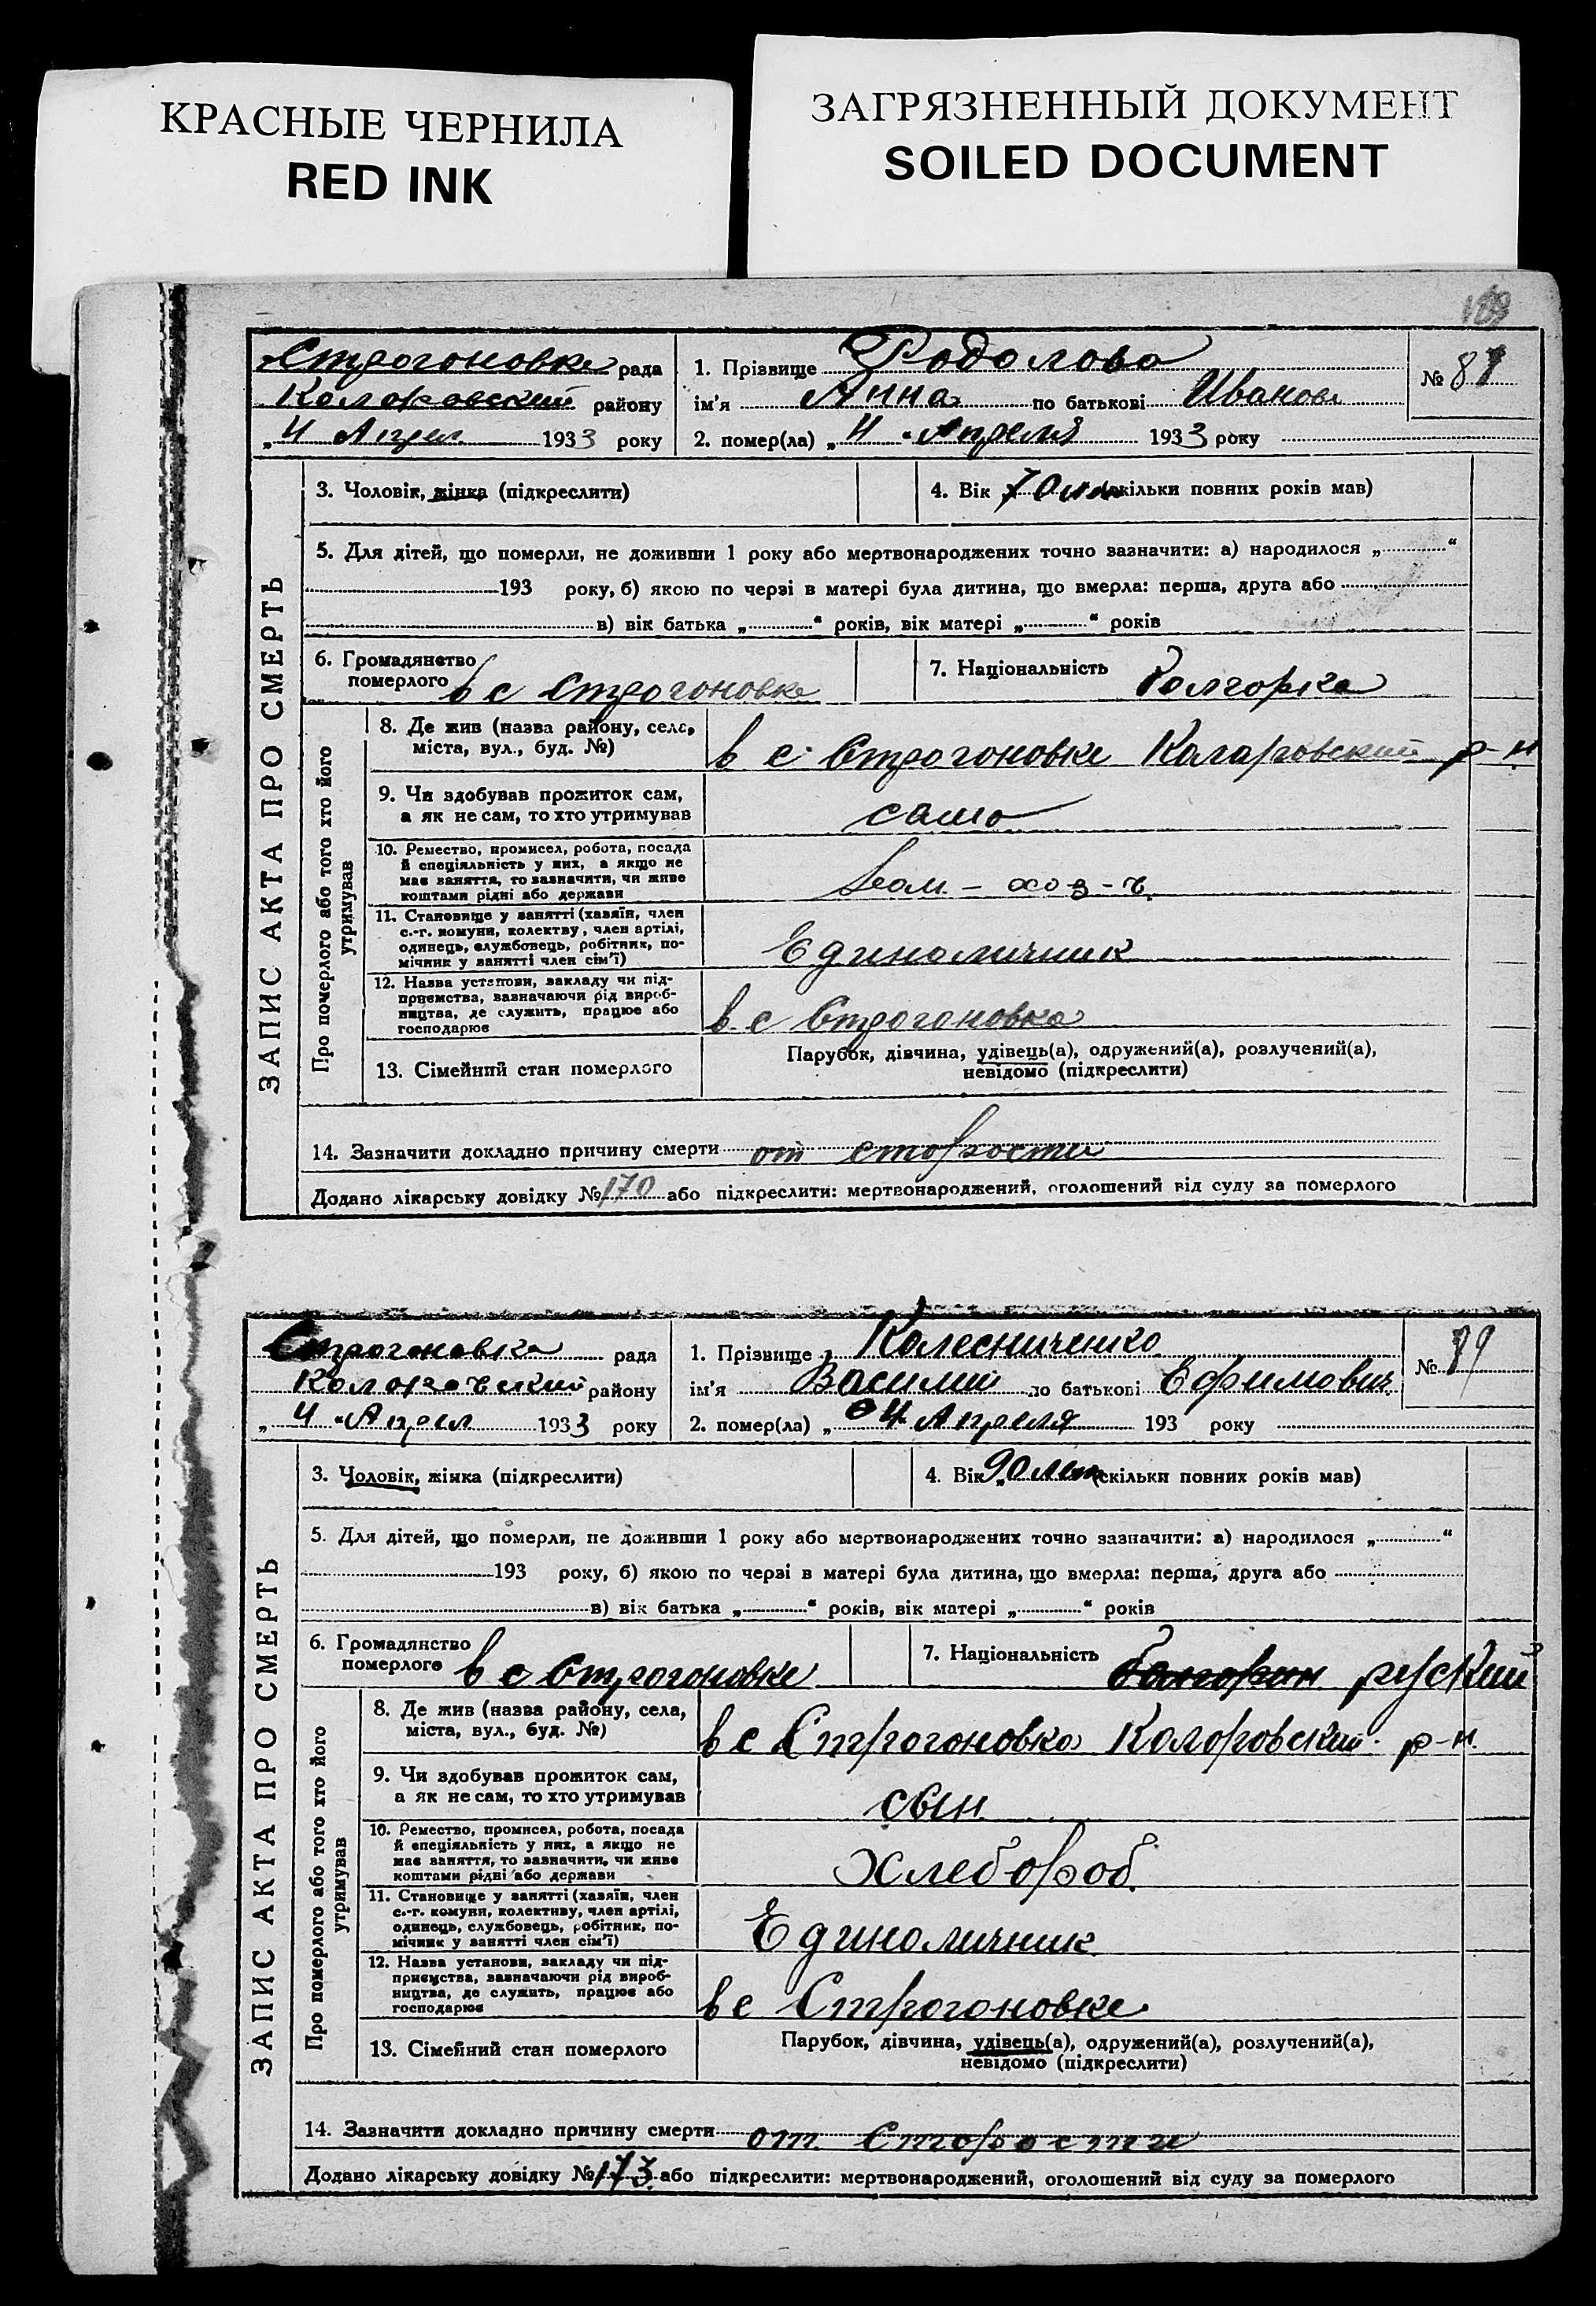 КРАСНЫЕ ЧЕРНИЛА
RED INK
ЗАГРЯЗНЕННЫЙ ДОКУМЕНТ
SOILED DOCUMENT
Строгоновке рада
района
Коларовский району
„ 4 Апрел 1933 року
1. Прізвище Родолова
ім'я Анна по батькові Иванов
2. помер(ла) „ 4 “ Апреля 1933 року
№ 87
ЗАПИС АКТА ПРО СМЕРТЬ
3. Чоловік, жінка (підкреслити)
4. Вік 70 лет (скільки повних років мав)
5. Для дітей, що померли, не доживши 1 року або мертвонароджених точно зазначити: а) народилося „ “
193 року, б) якою по черзі в матері була дитина, що вмерла: перша, друга або
в) вік батька „ “ років, вік матері „ “ років
6. Громадянство
померлого в с Строгоновке
7. Національність болгорка
Про померлого або того хто його утримував
8. Де жив (назва району, села,
міста, вул., буд. №)
в с. Строгоновке Коларовский р-н
9. Чи здобував прожиток сам,
а як не сам, то хто утримував
само
10. Ремество, промисел, робота, посада
й спеціяльність у них, а якщо не
має заняття, то зазначити, чи живе
коштами рідні або держави
11. Становище у занятті (хазяїн, член
с.-г. комуни, колектву, член артілі,
одинець, службовець, робітник, по-
мічник у занятті член сім'ї)
Единоличник
12. Назва установи, закладу чи під-
приємства, зазначаючи рід вироб-
ництва, де служить, працює або
господарює
в с Строгоновка
13. Сімейний стан померлого
Парубок, дівчина, удівець(а), одружений(а), розлучений(а),
невідомо (підкреслити)
14. Зазначити докладно причину смерти от старости
Додано лікарську довідку № 170 або підкреслити: мертвонароджений, оголошений від суду за померлого
Строгоновка рада
Коларовский району
„ 4 “ Апрел 1933 року
1. Прізвище Колесниченко
ім'я Василий по батькові Ефимович
2. помер(ла) „ 4 Апреля 193 року
№ 89
ЗАПИС АКТА ПРО СМЕРТЬ
3. Чоловік, жінка (підкреслити)
4. Вік 90 лет (скільки повних років мав)
5. Для дітей, що померли, не доживши 1 року або мертвонароджених точно зазначити: а) народилося „ “
193 року, б) якою по черзі в матері була дитина, що вмерла: перша, друга або
в) вік батька „ “ років, вік матері „ “ років
6. Громадянство
померлого в с Строгоновке
7. Національність болгорин руский
Про померлого або того хто його утримував
8. Де жив (назва району, села,
міста, вул., буд. №)
в с Строгоновка Колоровский р-н
9. Чи здобував прожиток сам,
а як не сам, то хто утримував
сын
10. Ремество, промисел, робота, посада
й спеціяльність у них, а якщо не
має заняття, то зазначити, чи живе
коштами рідні або держави
хлебороб
11. Становище у занятті (хазяїн, член
с.-г. комуни, колективу, член артілі,
одинець, службовець, робітник, по-
мічник у занятті член сім'ї)
Единоличник
12. Назва установи, закладу чи під-
приємства, зазначаючи рід вироб-
ництва, де служить, працює або
господарює
в с Строгоновке
13. Сімейний стан померлого
Парубок, дівчина, удівець(а), одружений(а), розлучений(а),
невідомо (підкреслити)
14. Зазначити докладно причину смерти от старости
Додано лікарську довідку № 173 або підкреслити: мертвонароджений, оголошений від суду за померлого